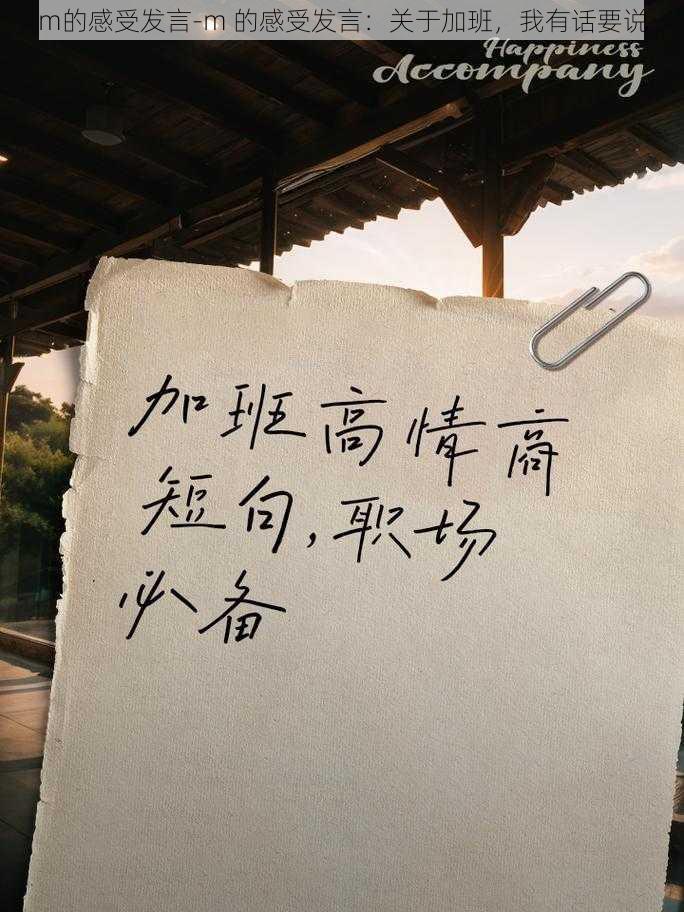 m的感受发言-m 的感受发言：关于加班，我有话要说
Happiness
Accompany
加班高情商
短句,职场
必备